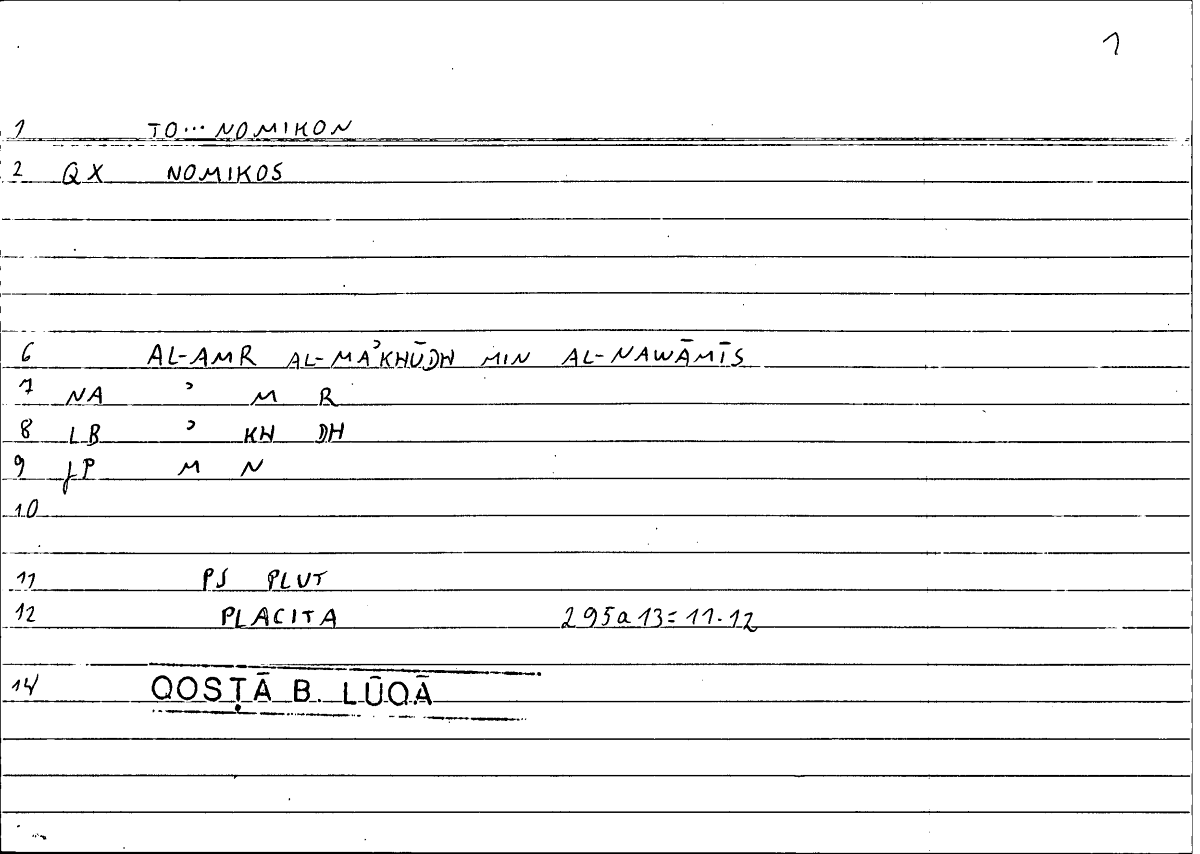 1
1 TO... NOMIKON
2 QX NOMIKOS
6 AL-AMR AL-MAʾKHŪDH MIN AL-NAWĀMĪS
7 NA ʾ M R
8 LB ʾ KH DH
9 JP M N
10
11 PS PLUT
12 PLACITA 295a13=11-12
14 QOSṬĀ B. LŪQĀ